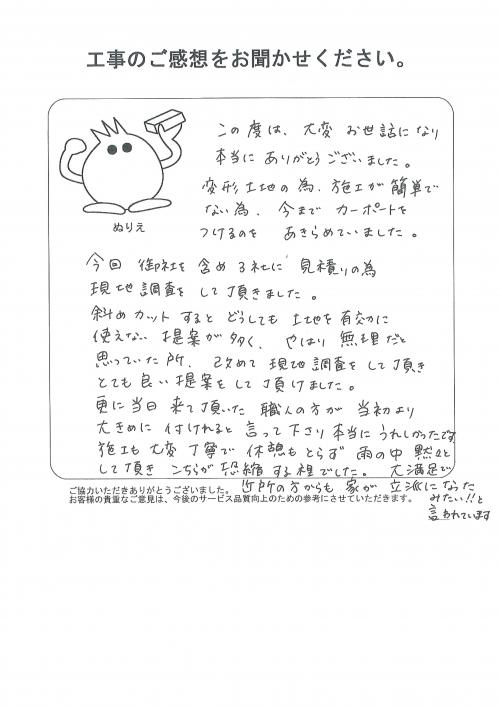 工事のご感想をお聞かせください。
この度は、大変 お世話になり
本当に ありがとうございました。
変形土地の為、施工が簡単で
ない為、今まで カーポートを
つけるのを あきらめていました。
ぬりえ
今回 御社を含め3社に 見積りの為
現地調査を して頂きました。
斜めカット すると どうしても 土地を有効に
使えない 提案が多く、やはり 無理だと
思っていた所、改めて 現地調査を して頂き
とても良い提案をして頂けました。
更に当日 来て頂いた 職人の方が 当初より
大きめに 付けれると 言って下さり本当にうれしかったです
施工も大変 丁寧で 休憩もとらず 雨の中 黙々と
して頂き こちらが恐縮する程でした。 大満足で
近所の方からも 家が 立派になった
みたい!!と
言われています
ご協力いただきありがとうございました。
お客様の貴重なご意見は、今後のサービス品質向上のための参考にさせていただきます。